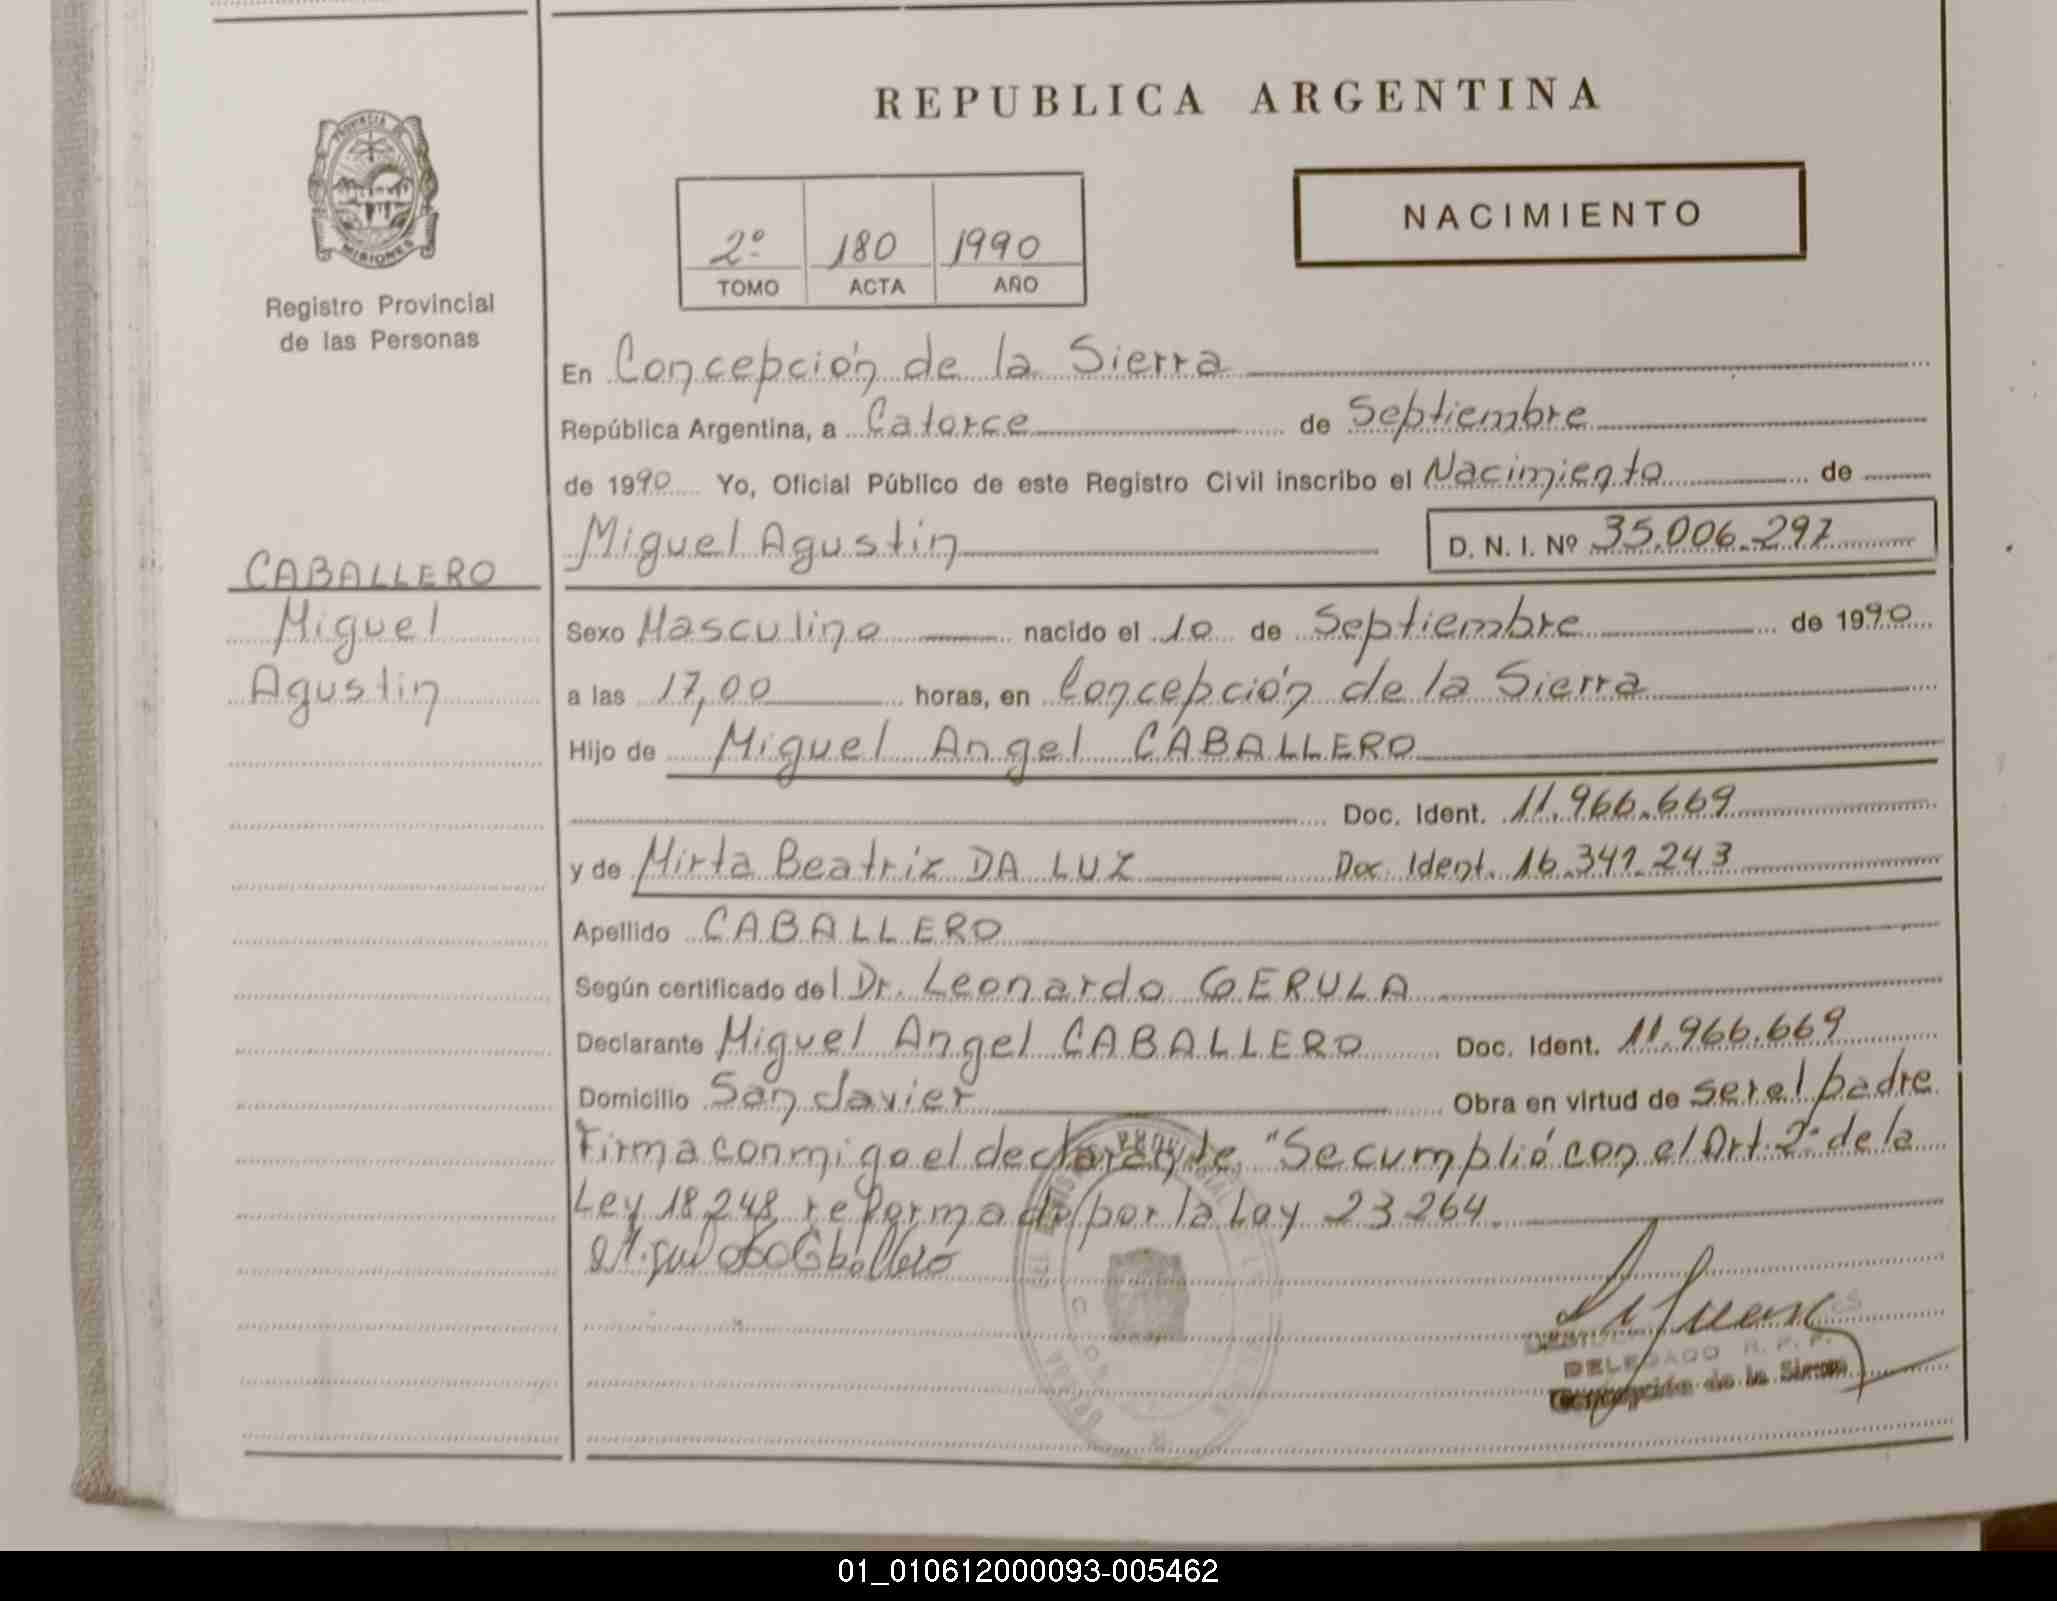 REPUBLICA ARGENTINA
PROVINCIA DE
MISIONES
Registro Provincial
de las Personas
2º 180 1990
TOMO ACTA AÑO
NACIMIENTO
En Concepción de la Sierra
República Argentina, a Catorce de Septiembre
de 1990 Yo, Oficial Público de este Registro Civil inscribo el Nacimiento de
Miguel Agustin D. N. I. Nº 35.006.297
CABALLERO
Miguel
Agustin
Sexo Masculino nacido el 10 de Septiembre de 1990
a las 17,00 horas, en Concepción de la Sierra
Hijo de Miguel Angel CABALLERO
Doc. Ident. 11.966.669
y de Mirta Beatriz DA LUZ Doc. Ident. 16.341.243
Apellido CABALLERO
Según certificado del Dr. Leonardo GERULA
Declarante Miguel Angel CABALLERO Doc. Ident. 11.966.669
Domicilio San Javier Obra en virtud de ser el padre
Firma conmigo el declarante. "Se cumplió con el Art. 2º de la
Ley 18.248 reformado por la Ley 23.264.
DELEGADO R. P. P.
Concepción de la Sierra
01_010612000093-005462